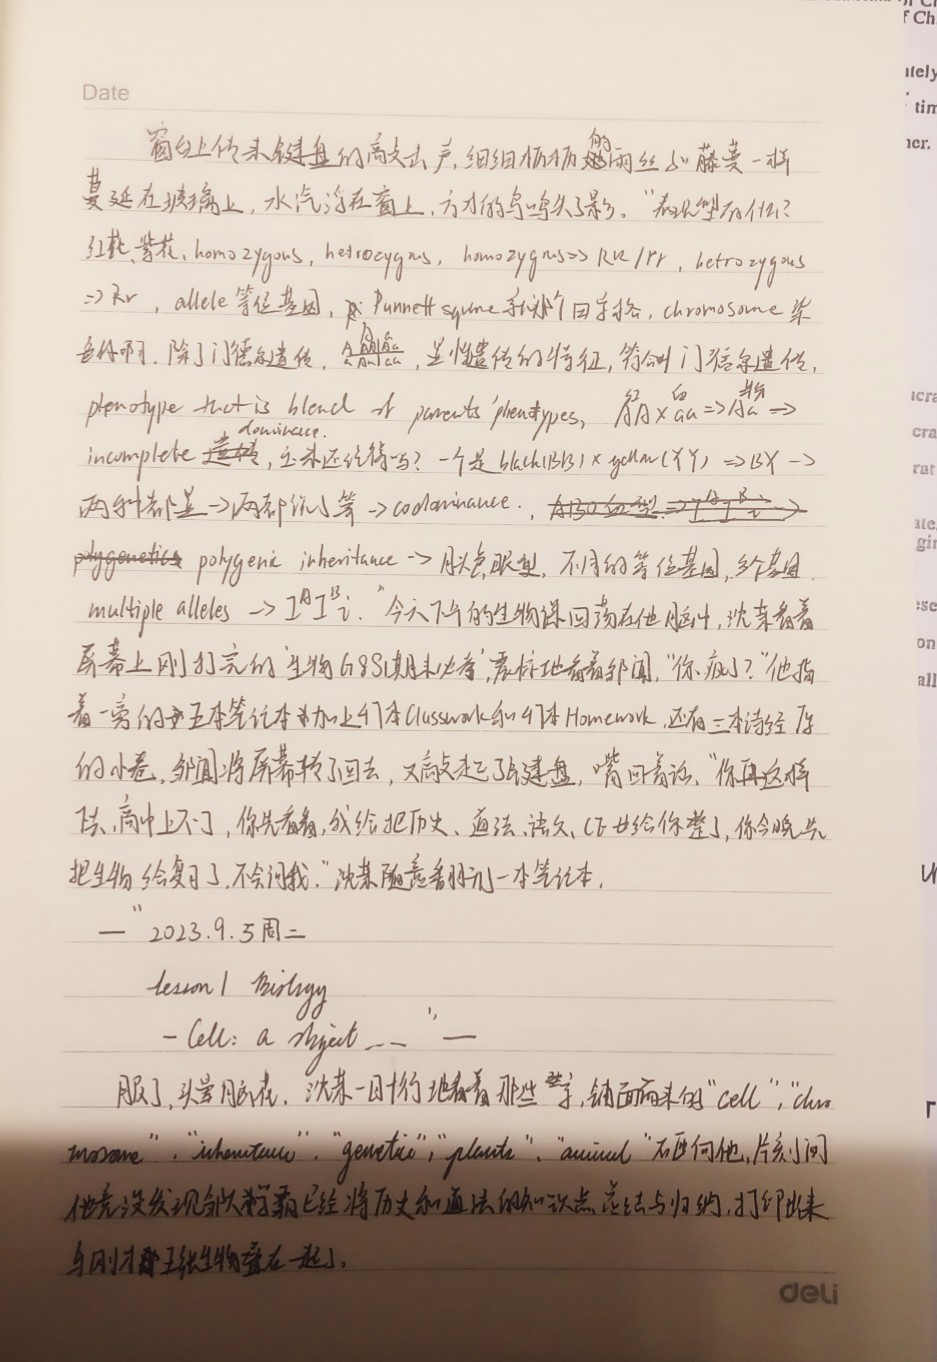 Date
窗台上传来键盘的敲击声，细细柄柄的雨丝如藤蔓一样
蔓延在玻璃上，水汽浮在窗上，方才的鸟鸣失了影。"表现型有什么？
红花、紫花、homozygous, hetrozygous, homozygous => RR/rr, hetrozygous
=> Rr, allele 等位基因, Punnett square 系那个田字格, chromosome 染
色体啊. 除了门德尔遗传, 显性遗传的特征, 符合叫门德尔遗传,
phenotype that is blend of parents' phenotypes, AA × aa => Aa =>
incomplete dominance. 一个是black(BB) × yellow(YY) => BY ->
两种都显 -> 两都 等 -> codominance.
polygenic inheritance -> 肤色, 眼型, 不同的等位基因, 多个基因.
multiple alleles -> I^A I^B i. "今天下午的生物课回荡在他脑中, 沈某看着
屏幕上刚打完的'生物G8S1期末必考',震惊地看着邹闻, "你疯了?"他指
着一旁的五本笔记本加上4本Classwork和4本Homework, 还有三本
的小卷, 邹闻将屏幕转了回去, 又敲起了键盘, 嘴回着话, "你再这样
下去, 高中上不了, 你先看看, 我给把历史、道法、语文、CE也给你整了, 你今晚先
把生物给复习了, 不会问我." 沈某随意翻开一本笔记本.
—" 2023.9.5周二
lesson 1 Biology
- Cell: a object ..." —
服了, 头晕脑花, 沈某一目十行地看着那些字, 铺面而来的"cell", "chro
mosome", "inheritance", "genetic", "plants", "animal" 石匹何他, 片刻间
他竟没发现邹大学霸已经将历史和道法的知识点总结与归纳, 打印出来
与刚才那五张生物叠在一起了.
deli